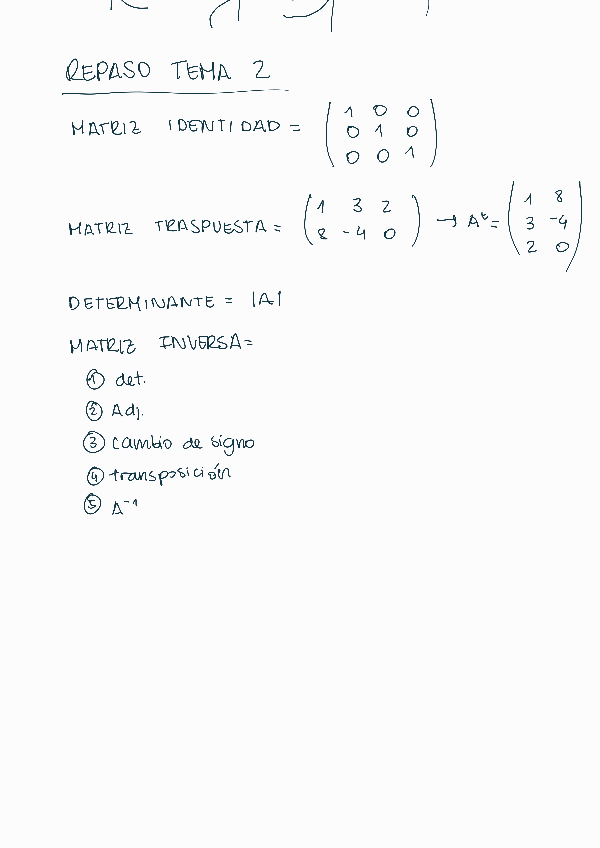 REPASO TEMA 2
MATRIZ IDENTIDAD = ( 1 0 0
0 1 0
0 0 1 )
MATRIZ TRASPUESTA = ( 1 3 2
8 -4 0 ) → Aᵗ = ( 1 8
3 -4
2 0 )
DETERMINANTE = |A|
MATRIZ INVERSA =
① det.
② Adj.
③ cambio de signo
④ transposición
⑤ A⁻¹